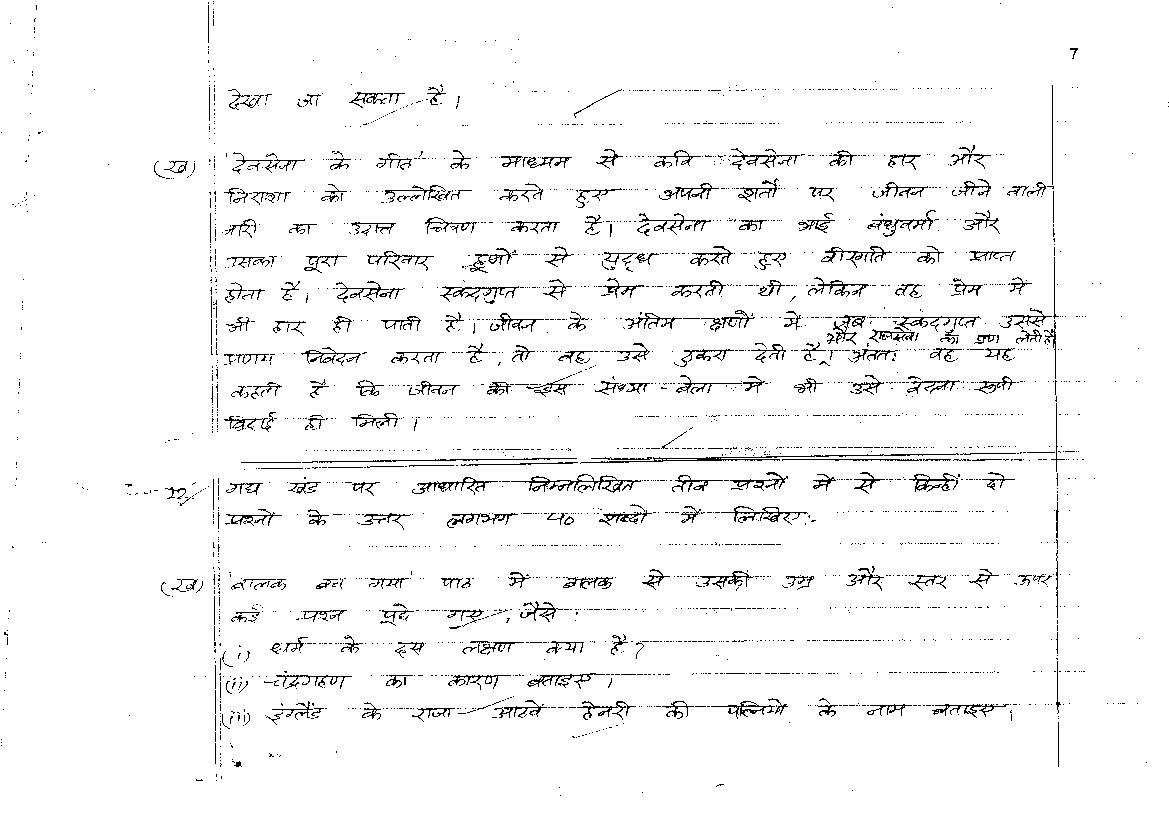 7
देखा जा सकता है।
(ख) 'देवसेना के गीत' के माध्यम से कवि देवसेना की हार और
निराशा को उल्लेखित करते हुए अपनी शर्तों पर जीवन जीने वाली
नारी का उदात्त चित्रण करता है। देवसेना का भाई बंधुवर्मा और
उसका पूरा परिवार हूणों से युद्ध करते हुए वीरगति को प्राप्त
होता है। देवसेना स्कंदगुप्त से प्रेम करती थी, लेकिन वह प्रेम में
भी हार ही पाती है। जीवन के अंतिम क्षणों में जब स्कंदगुप्त उससे
और राजसेवा का प्रण लेती है
प्रणय निवेदन करता है, तो वह उसे ठुकरा देती है। अंततः वह यह
कहती है कि जीवन की इस संध्या-बेला में भी उसे वेदना रूपी
विदाई ही मिली।
12/ गद्य खंड पर आधारित निम्नलिखित तीन प्रश्नों में से किन्हीं दो
प्रश्नों के उत्तर लगभग 40 शब्दों में लिखिए:-
(ख) 'बालक बच गया' पाठ में बालक से उसकी उम्र और स्तर से ऊपर
कई प्रश्न पूछे गए, जैसे:
(i) धर्म के दस लक्षण क्या है?
(ii) चंद्रग्रहण का कारण बताइए।
(iii) इंग्लैंड के राजा आठवें हेनरी की पत्नियों के नाम बताइए।